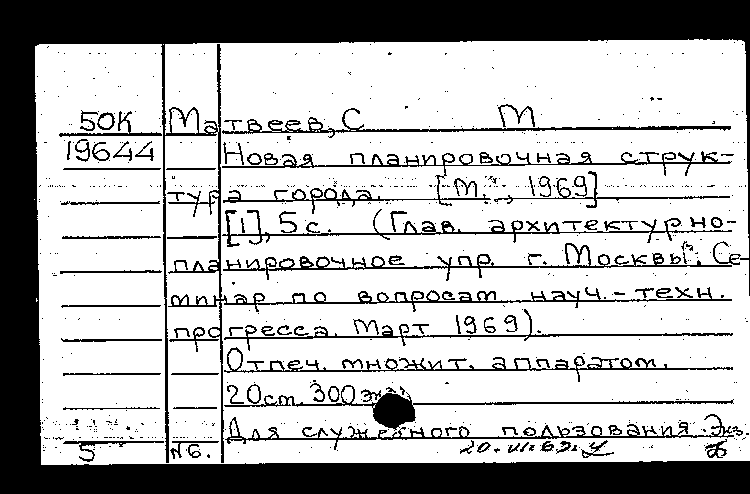 50К Матвеев, С М
19644 Новая планировочная струк-
тура города. [М., 1969]
[1], 5 с. (Глав. архитектурно-
планировочное упр. г. Москвы. Се-
минар по вопросам науч.-техн.
прогресса. Март 1969).
Отпеч. множит. аппаратом.
20 ст. 300 экз.
Для служебного пользования. Экз.
5 №6. 20.VI.69.